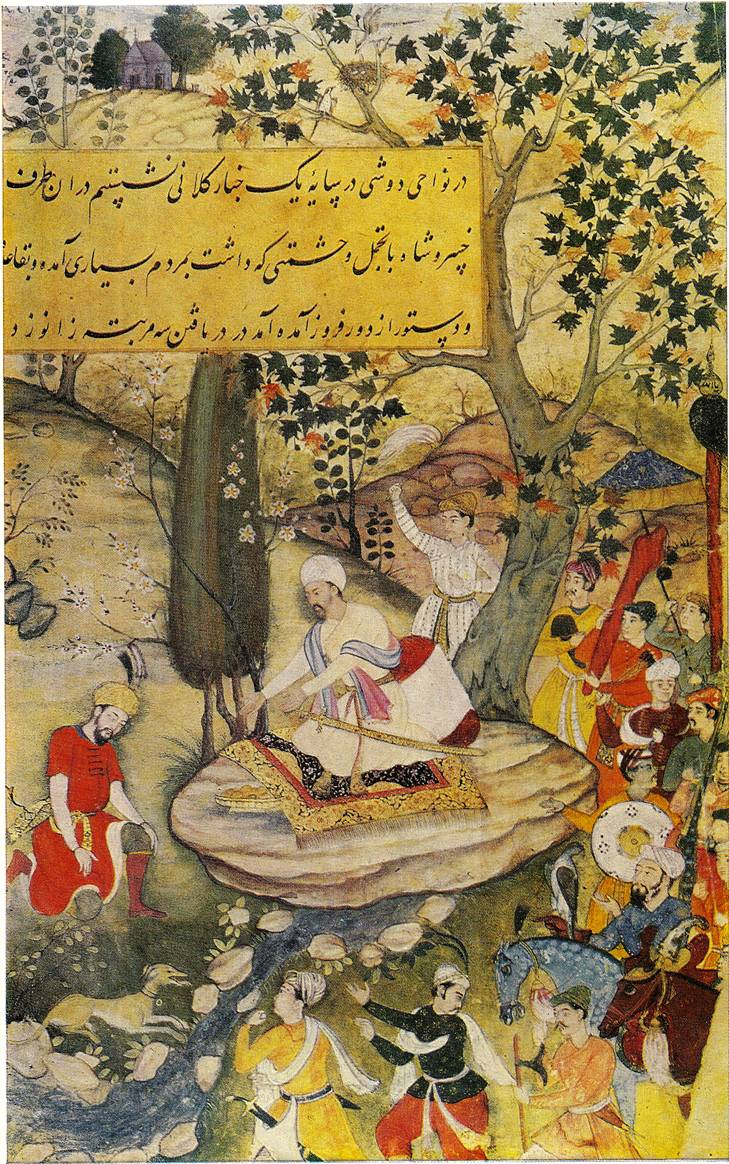 در نواحی دوشی در سایهٔ یک چنار کلانی نشستیم در ان طرف
خسرو شاه با تجمل و حشمتی که داشت بمردم بسیاری آمده و بقاعد
و دستور از دور فرود آمده آمد در در یافتن سه مرتبه زانو زد